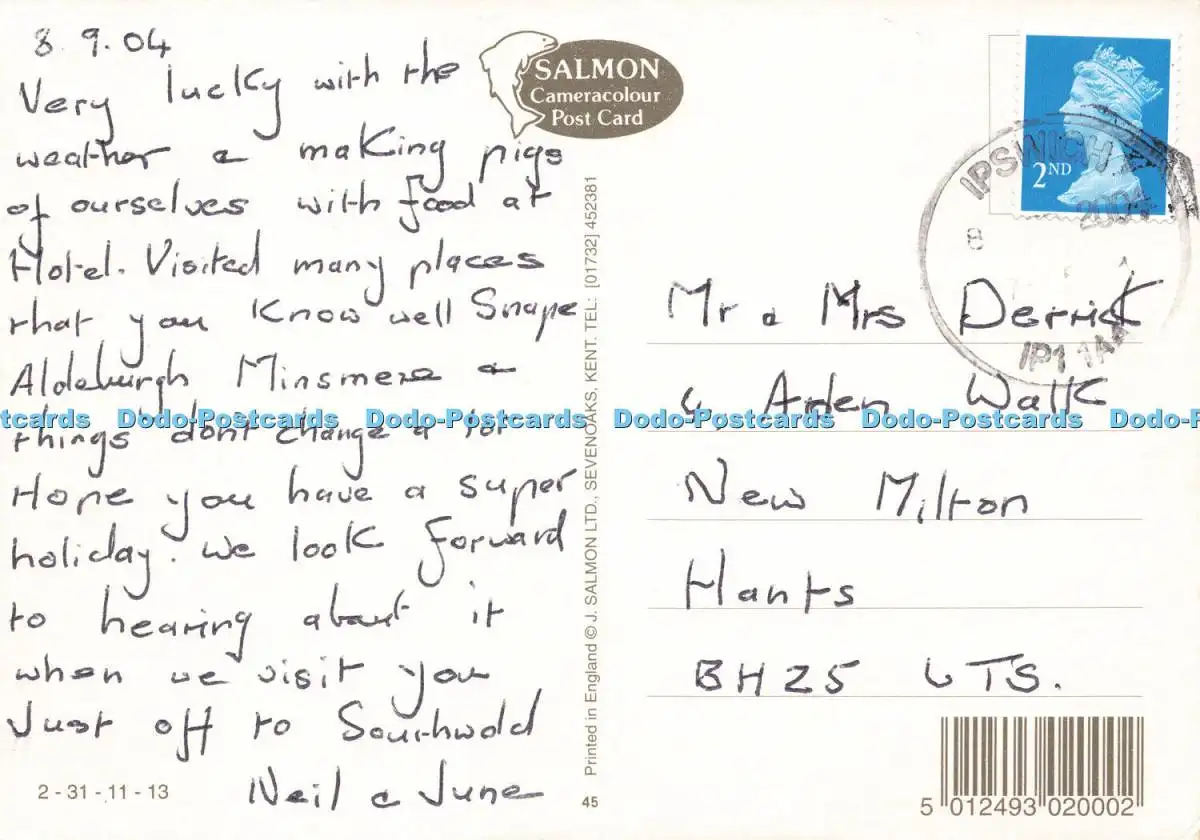 8.9.04
Very lucky with the
weather & making pigs
of ourselves with food at
Hotel. Visited many places
that you know well Snape
Aldeburgh Minsmere &
things dont change a lot
Hope you have a super
holiday. We look forward
to hearing about it
when we visit you
Just off to Southwold
Neil & June
2 - 31 - 11 - 13
SALMON
Cameracolour
Post Card
Printed in England © J. SALMON LTD., SEVENOAKS, KENT. TEL: [01732] 452381
45
2ND
IPSWICH
2004
8
IP1 1AA
Mr & Mrs Derrick
6 Arden Walk
New Milton
Hants
BH25 6TS.
5 012493 020002
Dodo-Postcards Dodo-Postcards Dodo-Postcards Dodo-Postcards